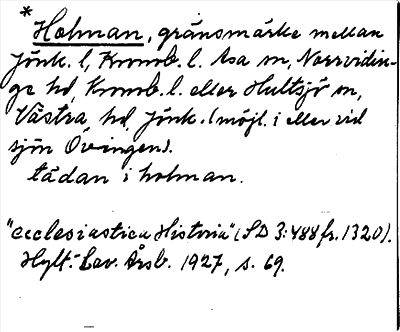 * Holman, gränsmärke mellan
Jönk. l, Kronob. l. Asa sn, Norrvidin-
ge hd, Kronob. l. eller Hultsjö sn,
Västra hd, Jönk. l (möjl. i eller vid
sjön Övingen).
tädan i holman.
"ecclesiastica Historia" (SD 3:488 fr. 1320).
Hylt.-Cav. Årsb. 1927, s. 69.